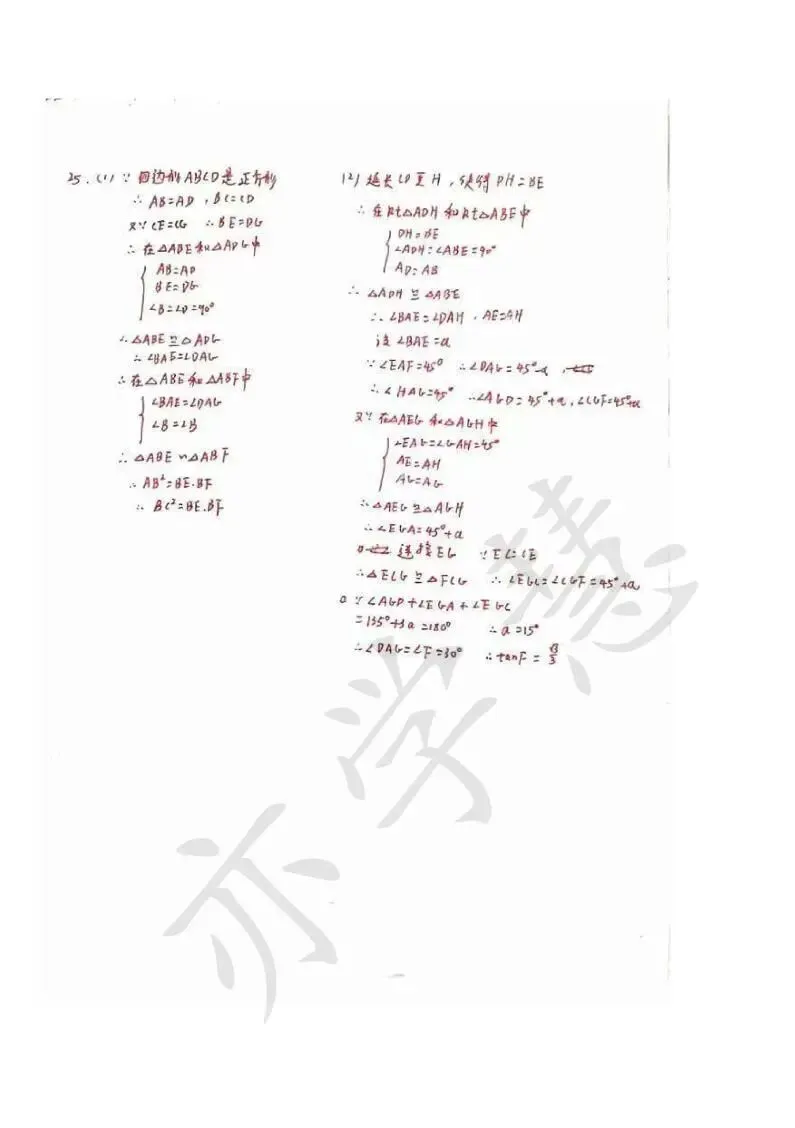 25. (1) ∵ 四边形ABCD是正方形
∴ AB=AD , BC=CD
又∵ CE=CG ∴ BE=DG
∴ 在△ABE和△ADG中
AB=AD
BE=DG
∠B=∠D=90°
∴ △ABE≌△ADG
∴ ∠BAE=∠DAG
∴ 在△ABE和△ABF中
∠BAE=∠DAG
∠B=∠B
∴ △ABE∽△ABF
∴ AB²=BE.BF
∴ BC²=BE.BF
(2) 延长CD至H , 使得DH=BE
∴ 在Rt△ADH和Rt△ABE中
DH=BE
∠ADH=∠ABE=90°
AD=AB
∴ △ADH≌△ABE
∴ ∠BAE=∠DAH , AE=AH
设∠BAE=a
∵ ∠EAF=45° ∴ ∠DAG=45°-a ,
∴ ∠HAG=45° ∴ ∠AGD=45°+a , ∠CGF=45°+a
又∵ 在△AEG和△AGH中
∠EAG=∠GAH=45°
AE=AH
AG=AG
∴ △AEG≌△AGH
∴ ∠EGA=45°+a
连接EG ∵ EC=CE
∴ △ECG≌△FCG ∴ ∠EGC=∠CGF=45°+a
∵ ∠AGD+∠EGA+∠EGC
=135°+3a=180° ∴ a=15°
∴ ∠DAG=∠F=30° ∴ tanF=√3/3
亦学慧